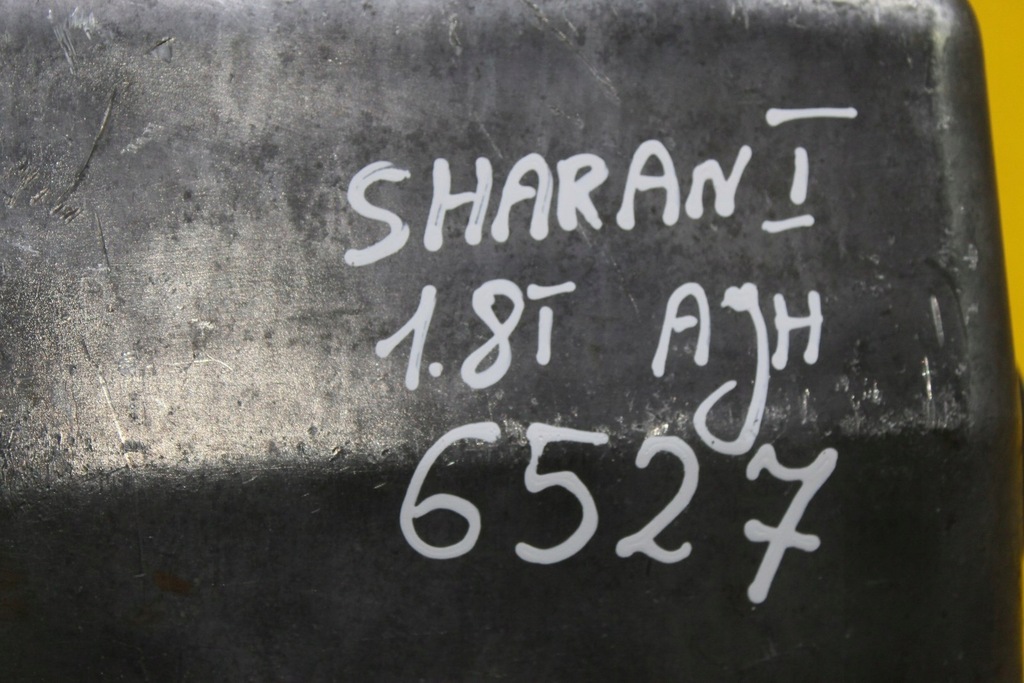 SHARAN I
1.8T AJH
6527